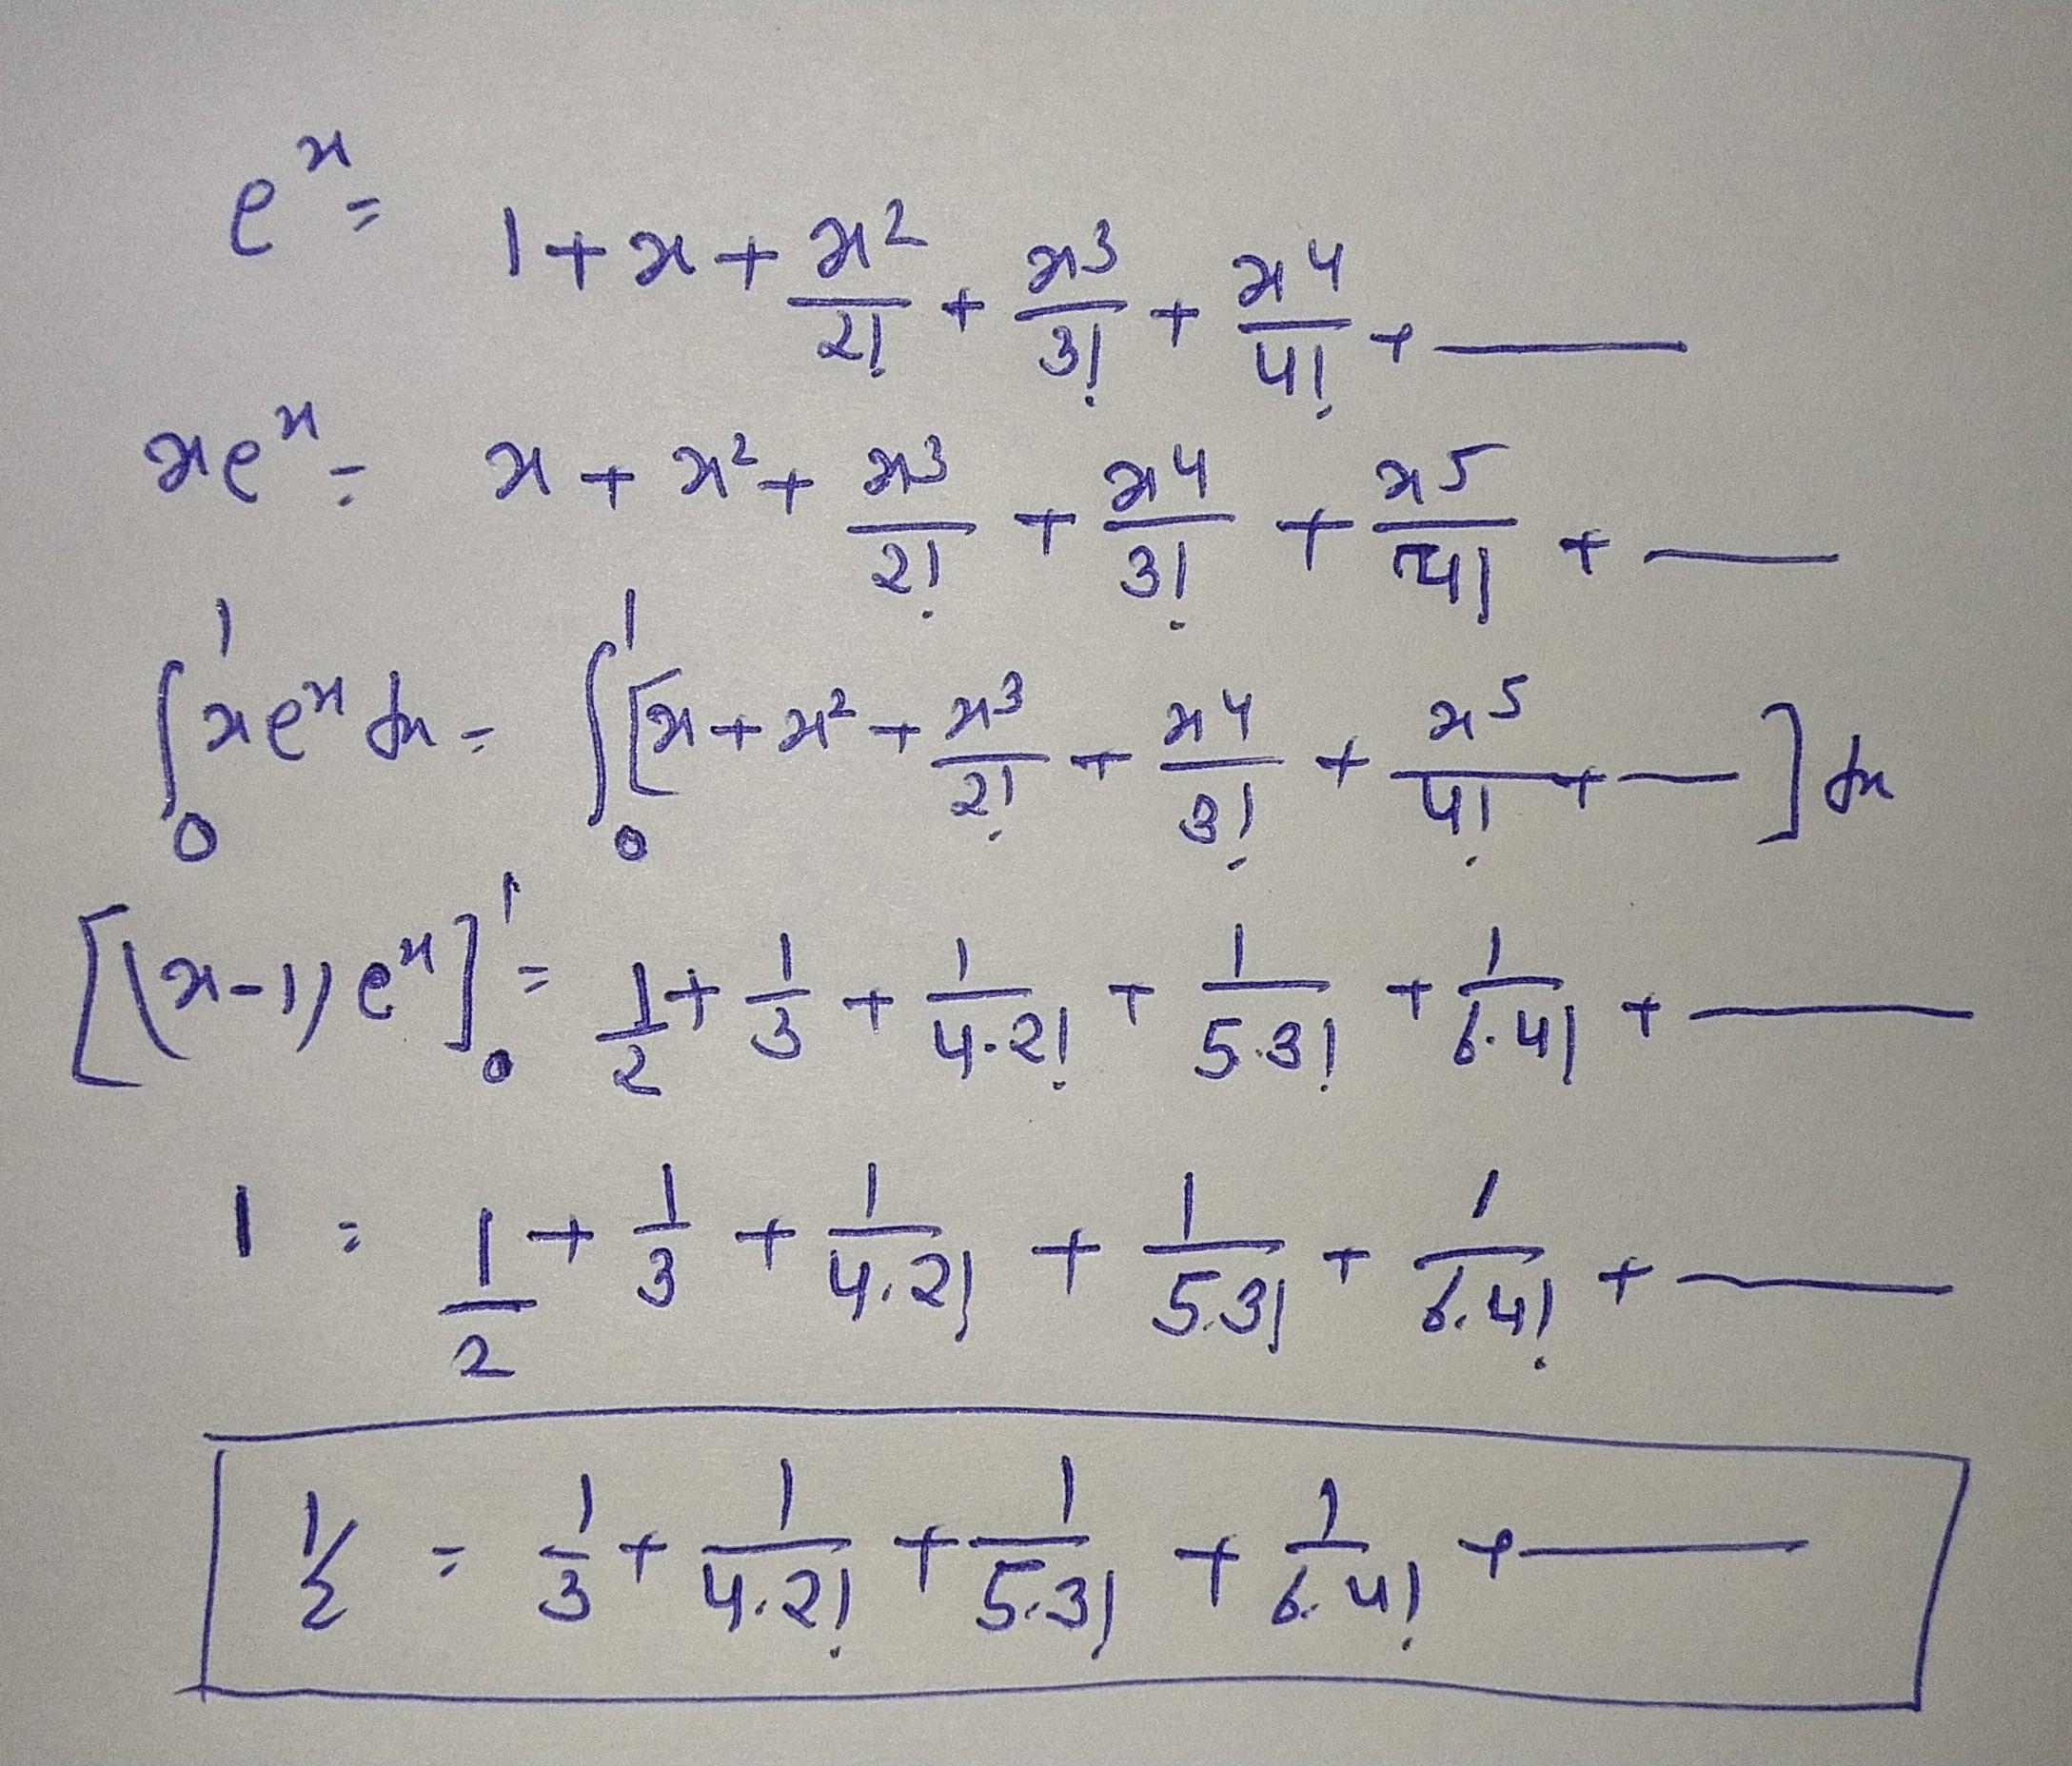 e^x = 1 + x + x^2/2! + x^3/3! + x^4/4! + ———
xe^x = x + x^2 + x^3/2! + x^4/3! + x^5/4! + ———
∫_0^1 xe^x dx = ∫_0^1 [x + x^2 + x^3/2! + x^4/3! + x^5/4! + ———] dx
[(x-1)e^x]_0^1 = 1/2 + 1/3 + 1/(4·2!) + 1/(5·3!) + 1/(6·4!) + ———
1 = 1/2 + 1/3 + 1/(4·2!) + 1/(5·3!) + 1/(6·4!) + ———
1/2 = 1/3 + 1/(4·2!) + 1/(5·3!) + 1/(6·4!) + ———